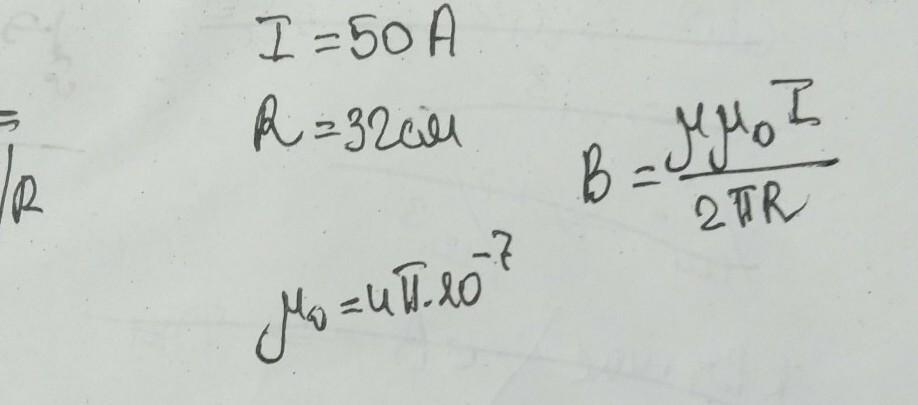 I = 50 A
=
R = 32 см
/R
B = μμ₀I / 2πR
μ₀ = 4π·10⁻⁷